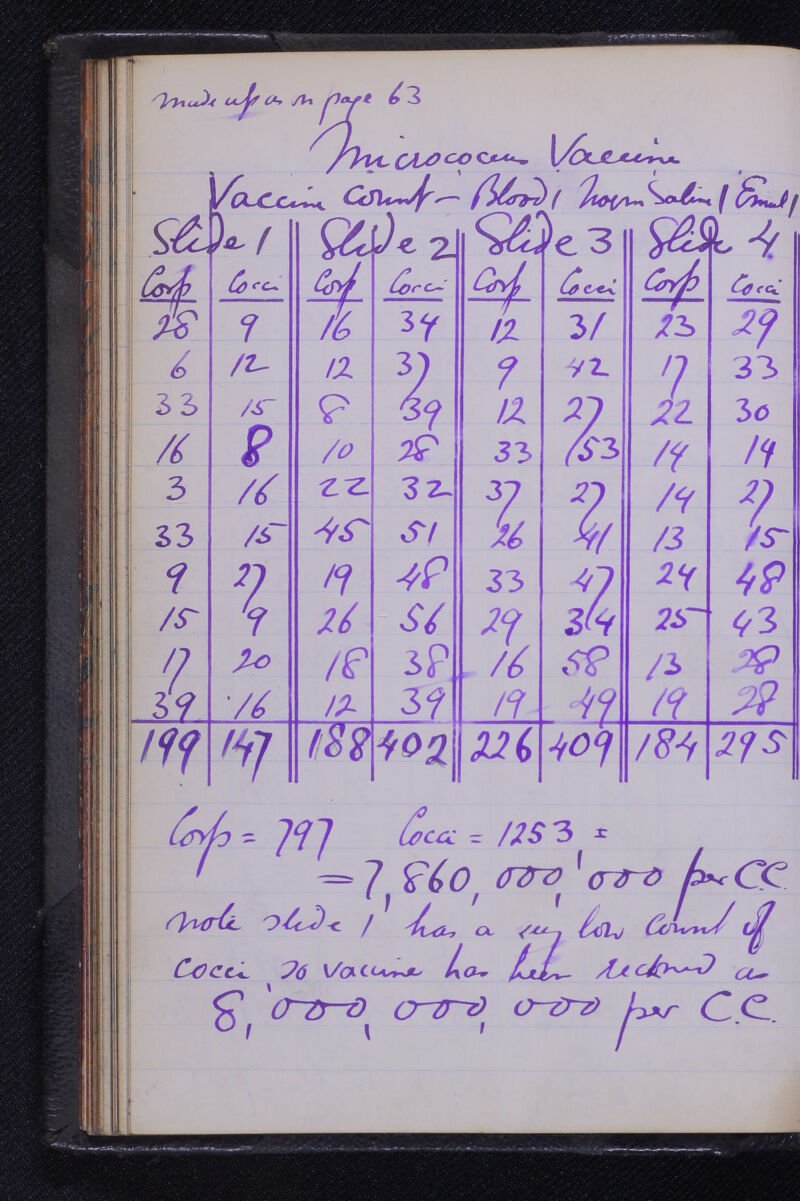 made up as on page 63
Micrococcus Vaccine
Vaccine Count – Blood 1 Norm Saline 1 Emul 1
Slide 1 Slide 2 Slide 3 Slide 4
Corp Cocci Corp Cocci Corp Cocci Corp Cocci
28 9 16 34 12 31 23 29
6 12 12 37 9 42 17 33
33 15 8 39 12 27 22 30
16 8 10 28 33 53 14 14
3 16 22 32 37 27 14 27
33 15 45 51 26 41 13 15
9 27 19 48 33 47 24 48
15 9 26 56 29 34 25 43
17 20 18 38 16 58 13 28
39 16 12 39 19 49 19 28
199 147 188 402 226 409 184 295
Corp = 797 Cocci = 1253 =
= 7,860,000,000 per C.C.
note slide 1 has a very low count of
cocci so vaccine has been reckoned as
8,000,000,000 per C.C.